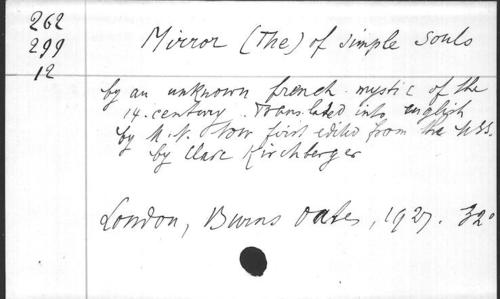 262
299
12
Mirror (The) of simple souls
by an unknown french mystic of the
14. century. Translated into english
by M.N. Now first edited from the MSS.
by Clare Kirchberger
London, Burns Oates, 1927. 32°